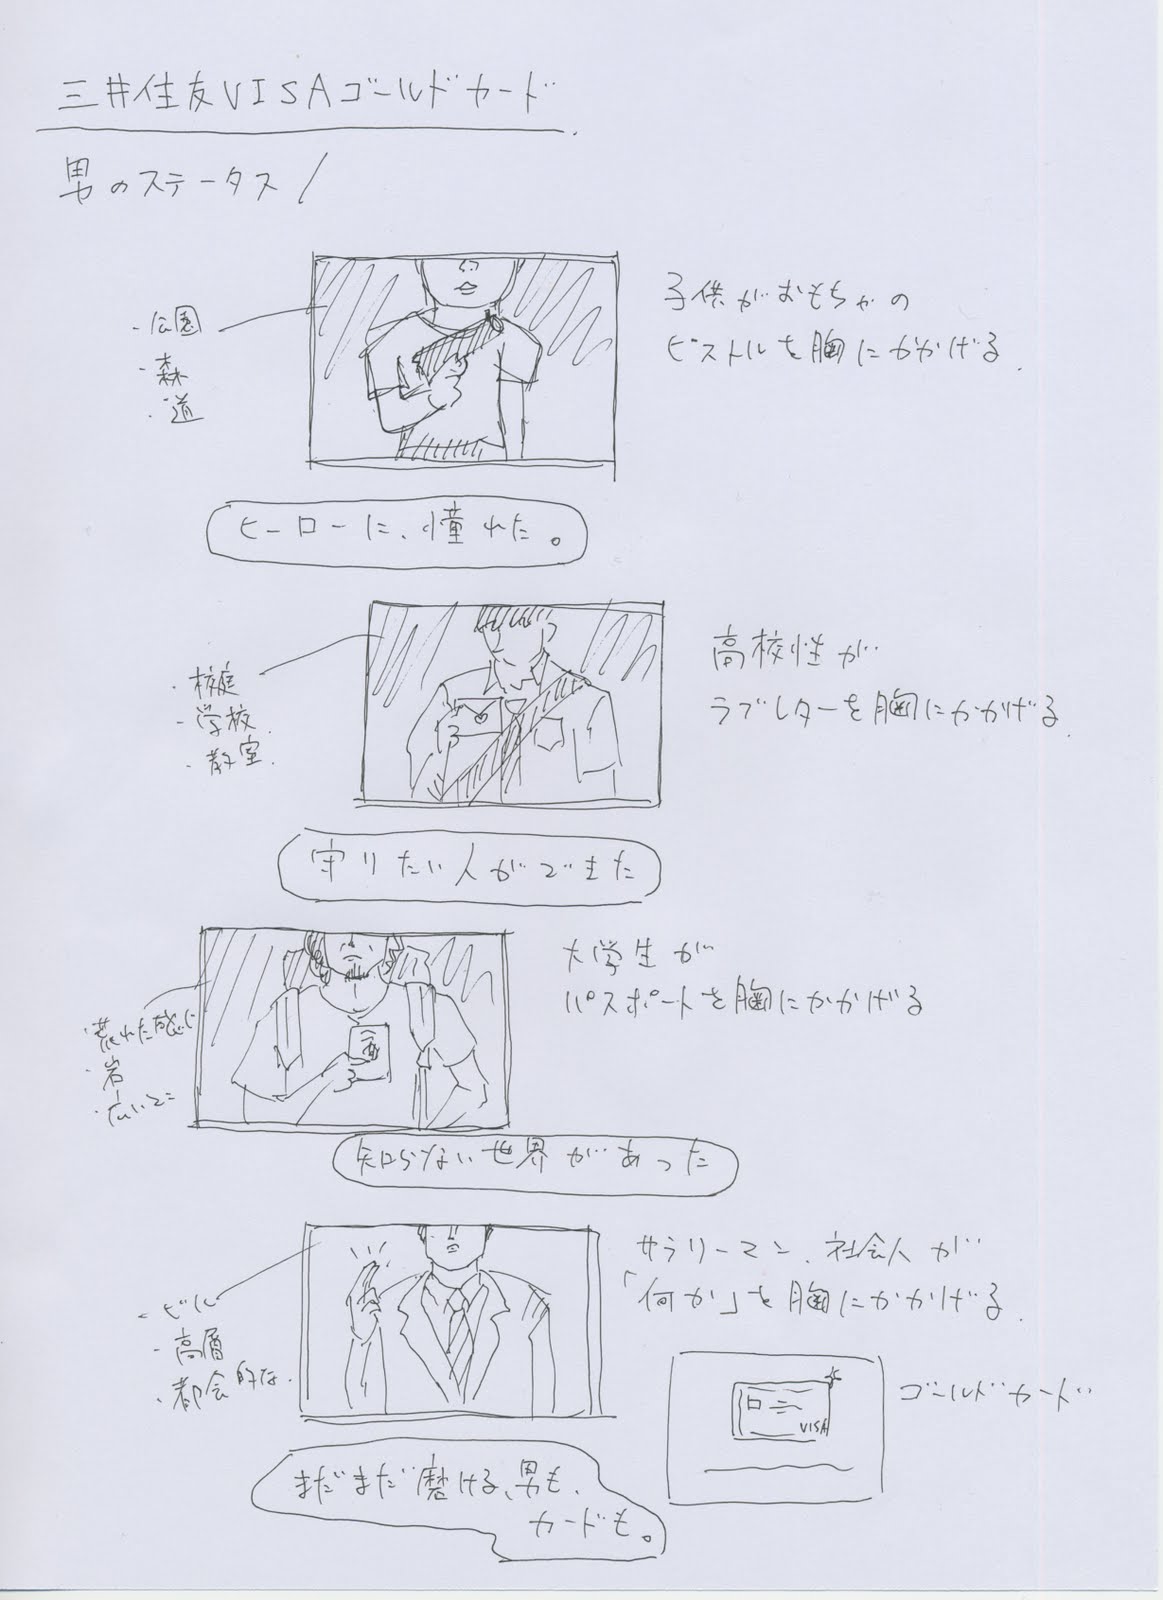 三井住友VISAゴールドカード
男のステータス/
・公園
・森
・道
子供がおもちゃの
ピストルを胸にかかげる.
ヒーローに、憧れた。
・校庭
・学校
・教室
高校性が
ラブレターを胸にかかげる.
守りたい人ができた
・荒れた感じ
・岩
・広いとこ
大学生が
パスポートを胸にかかげる
知らない世界があった
・ビル
・高層
・都会的な.
サラリーマン、社会人が
「何か」を胸にかかげる.
VISA
ゴールドカード
まだまだ磨ける、男も、
カードも。